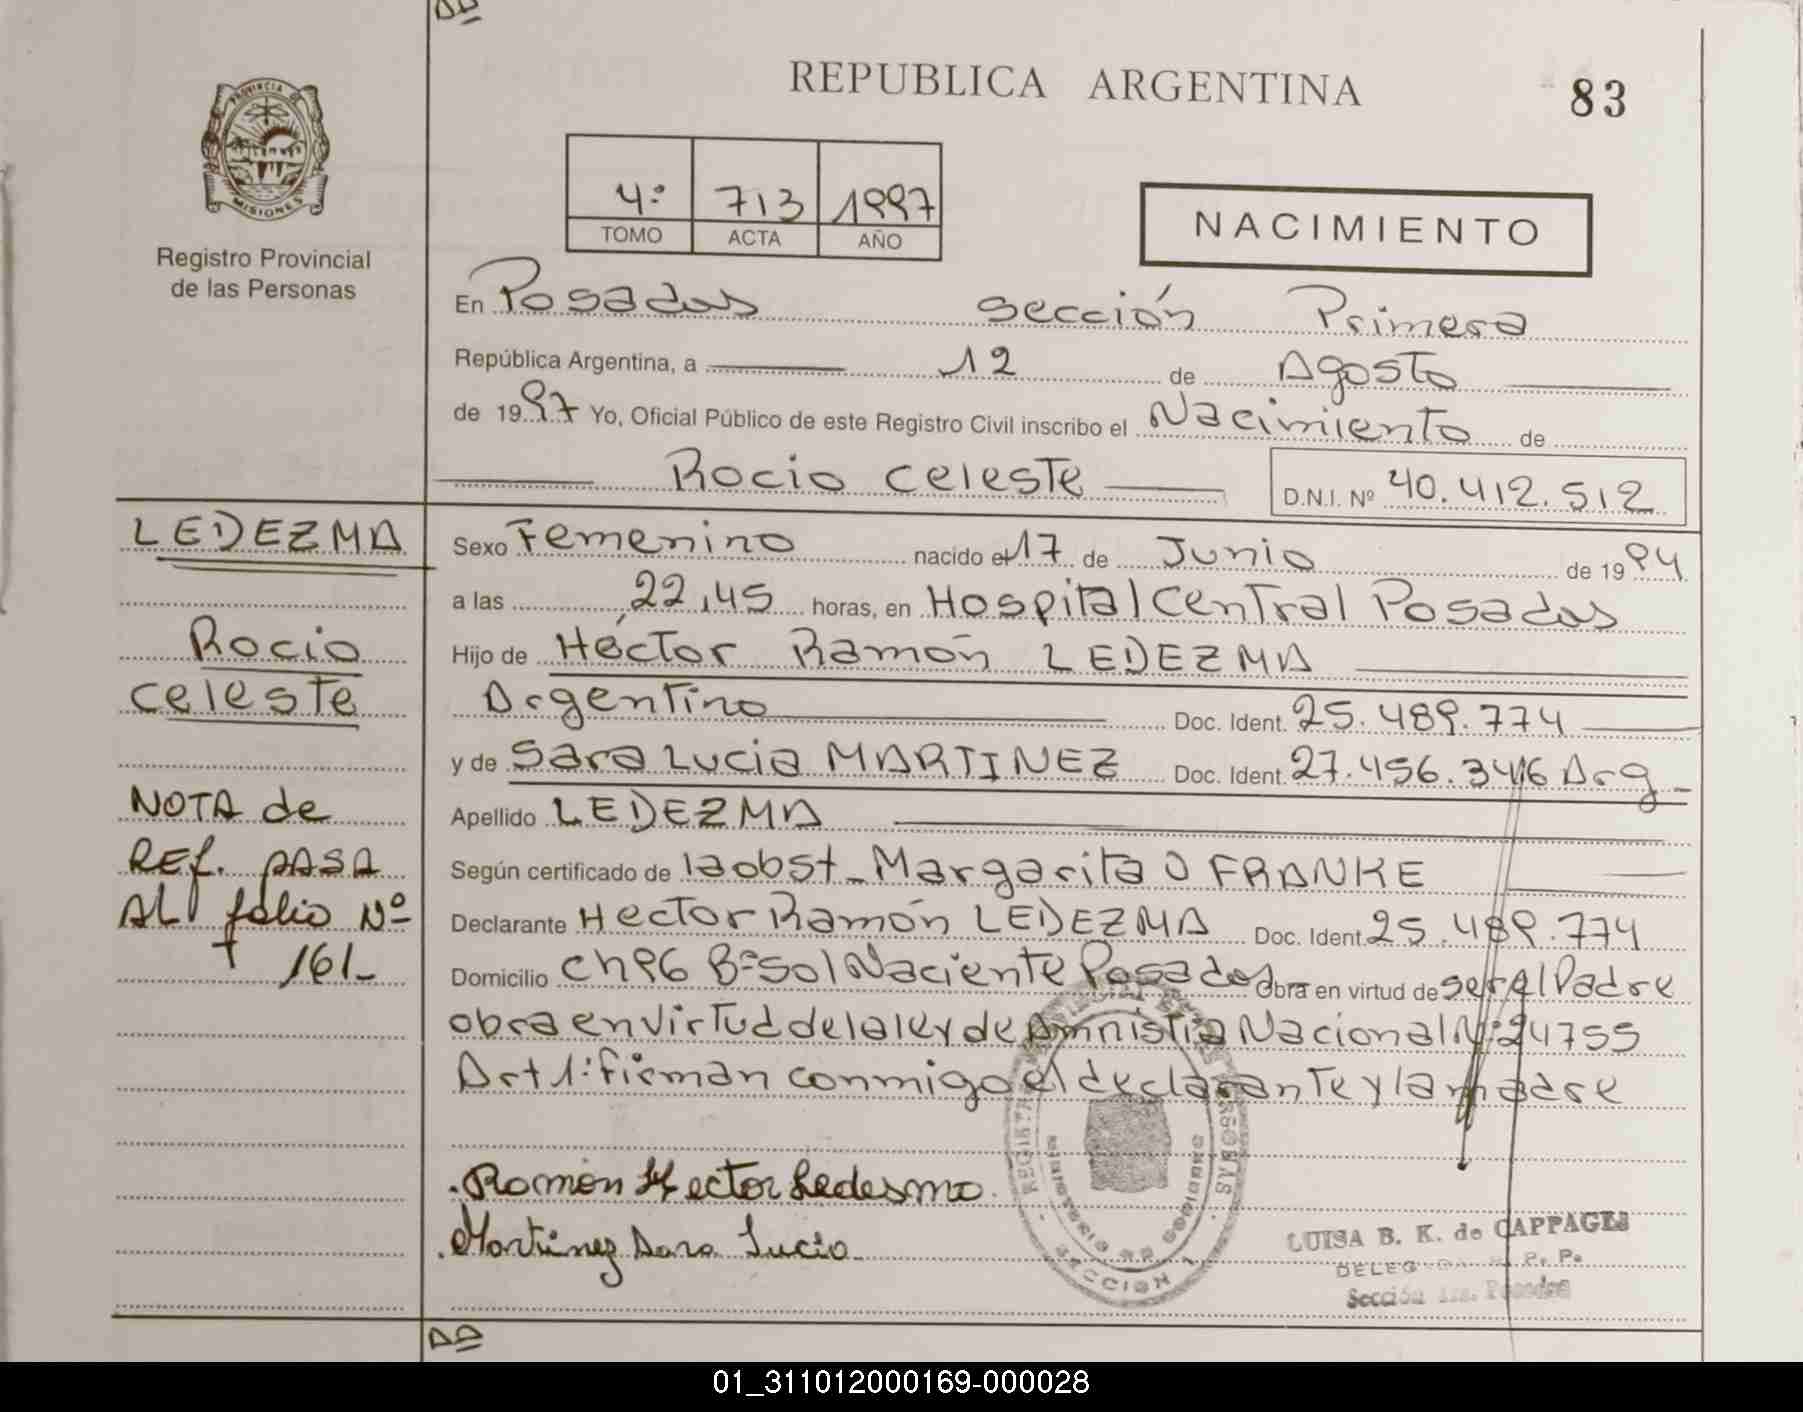 DD
REPUBLICA ARGENTINA
83
PROVINCIA DE
MISIONES
Registro Provincial
de las Personas
4º 713 1997
TOMO ACTA AÑO
NACIMIENTO
En Posadas sección Primera
República Argentina, a 12 de Agosto
de 1997 Yo, Oficial Público de este Registro Civil inscribo el Nacimiento de
Rocio Celeste D.N.I. Nº 40.412.512
LEDEZMA
Rocio
Celeste
NOTA de
REf. PASA
AL folio Nº
161-
Sexo Femenino nacido el 17 de Junio de 1994
a las 22,45 horas, en Hospital Central Posadas
Hijo de Héctor Ramón LEDEZMA
Argentino Doc. Ident. 25.489.774
y de Sara Lucia MARTINEZ Doc. Ident. 27.456.346 Arg
Apellido LEDEZMA
Según certificado de la obst. Margarita O FRANKE
Declarante Hector Ramón LEDEZMA Doc. Ident. 25.489.774
Domicilio ch 96 Bº Sol Naciente Posadas Obra en virtud de ser el Padre
obra en virtud de la ley de Amnistia Nacional Nº 24755
Art 1º firman conmigo el declarante y la madre
Ramón Hector Ledesma.
Martinez Sara Lucia
SECCION 1
LUISA B. K. de CAPPAGLI
Sección 1ra. Posadas
DD
01_311012000169-000028